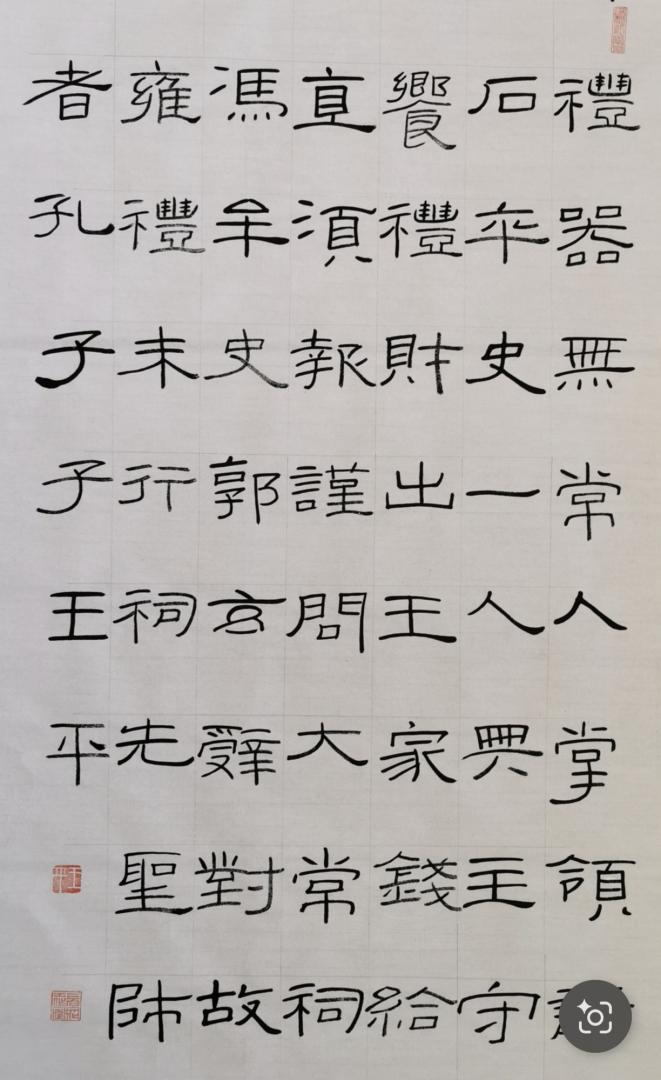 禮器無常人掌領
石卒史一人典主守
饗禮財出王家錢給
直須報謹問大常祠
馮牟史郭玄辭對故
雍禮未行祠先聖師
者孔子子王平